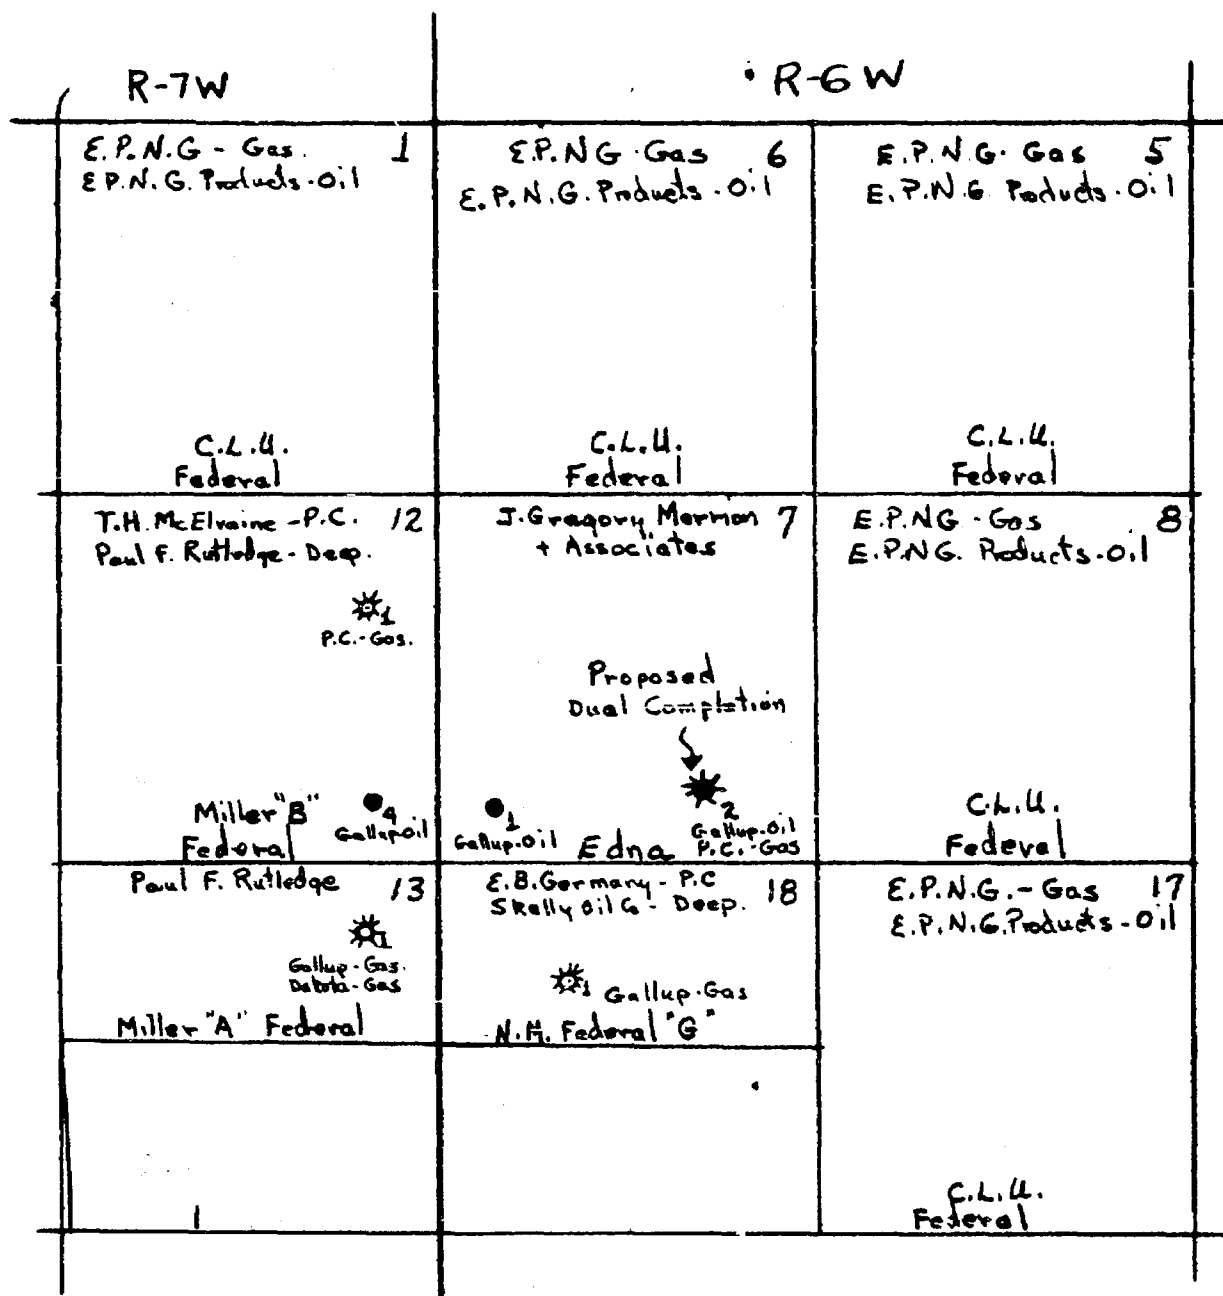 R-7W
R-6W
E.P.N.G - Gas. 1
E P.N.G. Products-Oil
C.L.U.
Federal
E.P.NG - Gas 6
E.P.N.G. Products - Oil
C.L.U.
Federal
E.P.N.G. Gas 5
E.P.N.G Products - Oil
C.L.U.
Federal
T.H. McElvaine - P.C. 12
Paul F. Rutledge - Deep.
1
P.C. - Gas.
Miller "B"
Federal
4
Gallup Oil
J. Gregory Merrion 7
+ Associates
Proposed
Dual Completion
1
Gallup. Oil
Edna
2
Gallup. Oil
P.C. - Gas
E.P.NG - Gas 8
E.P.NG. Products - Oil
C.L.U.
Federal
Paul F. Rutledge 13
1
Gallup - Gas.
Dakota - Gas
Miller "A" Federal
E.B. Germany - P.C 18
Skelly Oil Co - Deep.
1 Gallup - Gas
N.M. Federal "G"
E.P.N.G. - Gas 17
E.P.N.G. Products - Oil
C.L.U.
Federal